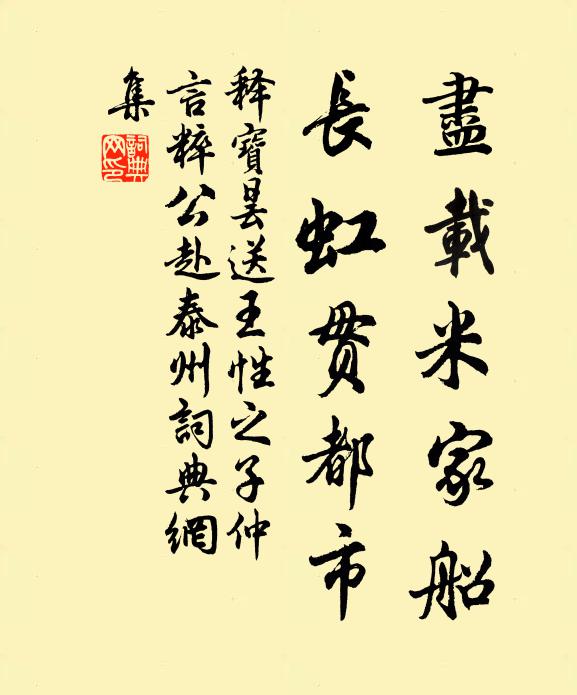 盡載米家船
長虹貫都市
释寶曇送王性之子仲
言粹公赴泰州詞典網
集
詞典網印